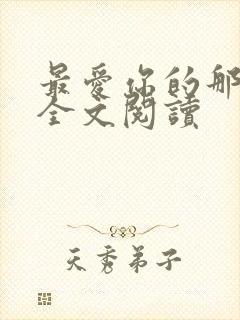 最愛你的那
全文閱讀
天秀弟子